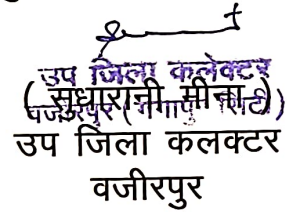 उप जिला कलेक्टर
( सुधारानी मीना )
वजीरपुर (गंगापुर सिटी)
उप जिला कलक्टर
वजीरपुर